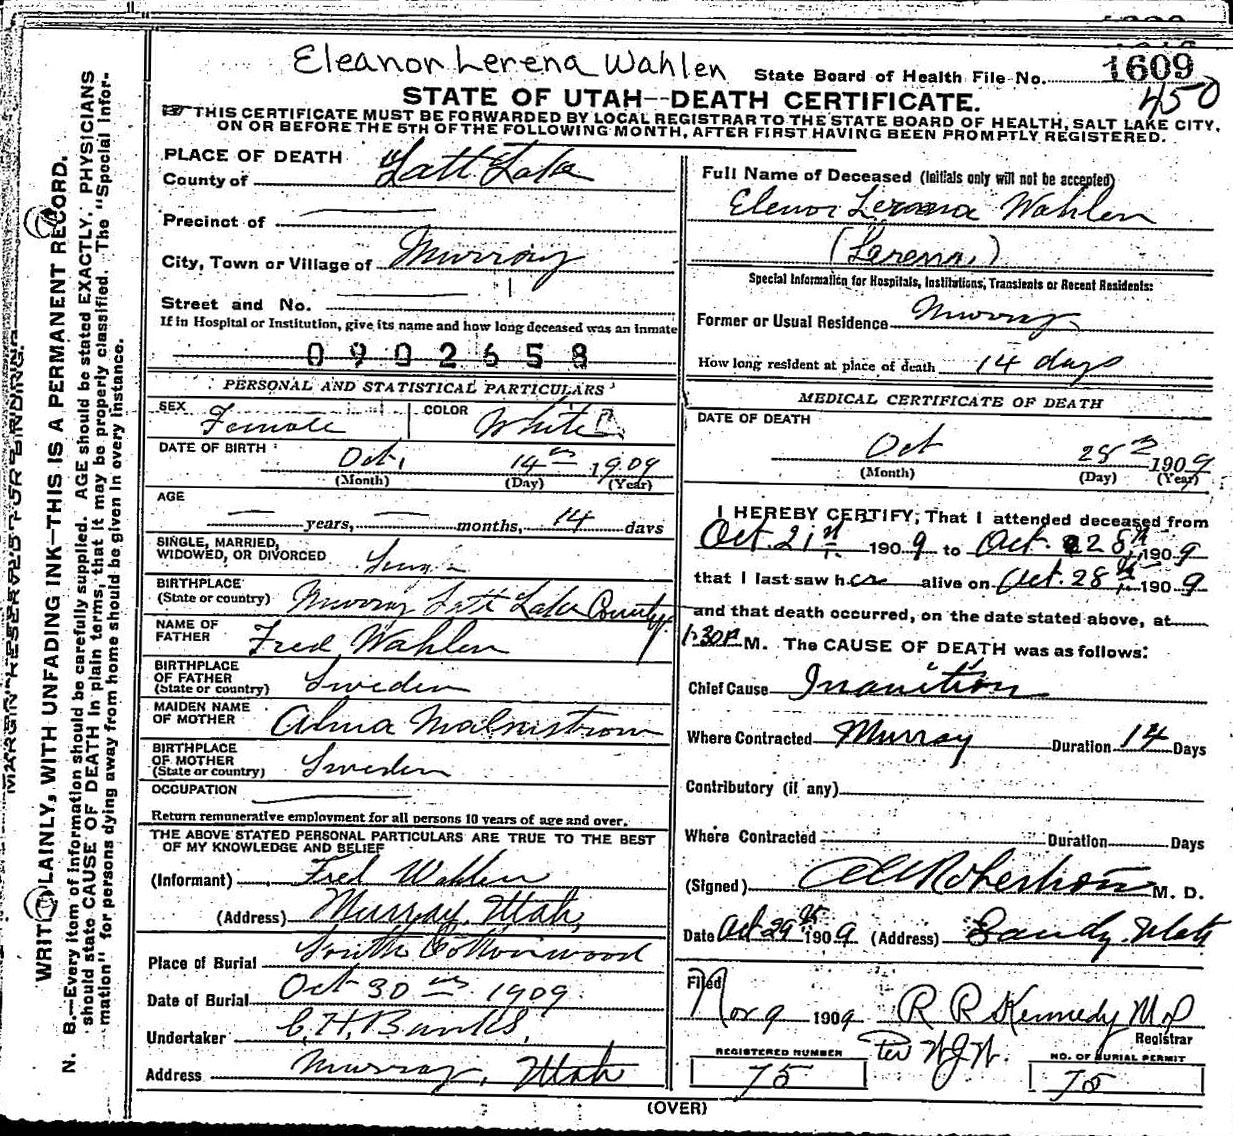 Eleanor Lerena Wahlen State Board of Health File No. 1609
450
STATE OF UTAH--DEATH CERTIFICATE.
THIS CERTIFICATE MUST BE FORWARDED BY LOCAL REGISTRAR TO THE STATE BOARD OF HEALTH, SALT LAKE CITY,
ON OR BEFORE THE 5TH OF THE FOLLOWING MONTH, AFTER FIRST HAVING BEEN PROMPTLY REGISTERED.
PLACE OF DEATH
County of Salt Lake
Precinct of
City, Town or Village of Murray
Street and No.
If in Hospital or Institution, give its name and how long deceased was an inmate
0902658
PERSONAL AND STATISTICAL PARTICULARS
SEX Female COLOR White
DATE OF BIRTH Oct. 14th 1909
(Month) (Day) (Year)
AGE
years, months, 14 days
SINGLE, MARRIED,
WIDOWED, OR DIVORCED
BIRTHPLACE
(State or country) Murray Salt Lake County
NAME OF
FATHER Fred Wahlen
BIRTHPLACE
OF FATHER
(State or country) Sweden
MAIDEN NAME
OF MOTHER Alma Malmstrom
BIRTHPLACE
OF MOTHER
(State or country) Sweden
OCCUPATION
Return remunerative employment for all persons 10 years of age and over.
THE ABOVE STATED PERSONAL PARTICULARS ARE TRUE TO THE BEST
OF MY KNOWLEDGE AND BELIEF
(Informant) Fred Wahlen
(Address) Murray Utah,
Place of Burial South Cottonwood
Date of Burial Oct 30th 1909
Undertaker C.H. Banks,
Address Murray, Utah
Full Name of Deceased (Initials only will not be accepted)
Elenor Lerena Wahlen
(Lerena,)
Special Information for Hospitals, Institutions, Transients or Recent Residents:
Former or Usual Residence Murray
How long resident at place of death 14 days
MEDICAL CERTIFICATE OF DEATH
DATE OF DEATH
Oct 28th 1909
(Month) (Day) (Year)
I HEREBY CERTIFY, That I attended deceased from
Oct. 21st 1909 to Oct. 28th 1909
that I last saw her alive on Oct. 28th 1909
and that death occurred, on the date stated above, at
1:30 P. M. The CAUSE OF DEATH was as follows:
Chief Cause Inanition
Where Contracted Murray Duration 14 Days
Contributory (if any)
Where Contracted Duration Days
(Signed) Robertson M. D.
Date Oct 29th 1909 (Address) Sandy Utah
Filed
Nov 9 1909 R R Kennedy M D
Registrar
Per
REGISTERED NUMBER
75
NO. OF BURIAL PERMIT
75
(OVER)
MARGIN RESERVED FOR BINDING.
WRITE PLAINLY, WITH UNFADING INK—THIS IS A PERMANENT RECORD.
N. B.—Every item of information should be carefully supplied. AGE should be stated EXACTLY. PHYSICIANS
should state CAUSE OF DEATH in plain terms, that it may be properly classified. The "Special Infor-
mation" for persons dying away from home should be given in every instance.